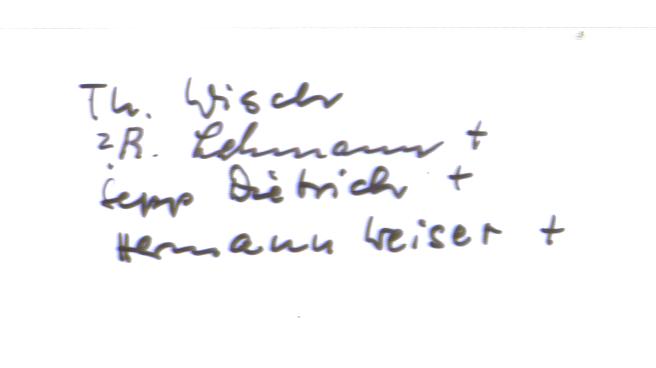 Th. Wisch
2R. Lehmann +
Sepp Dietrich +
Hermann Weiser +